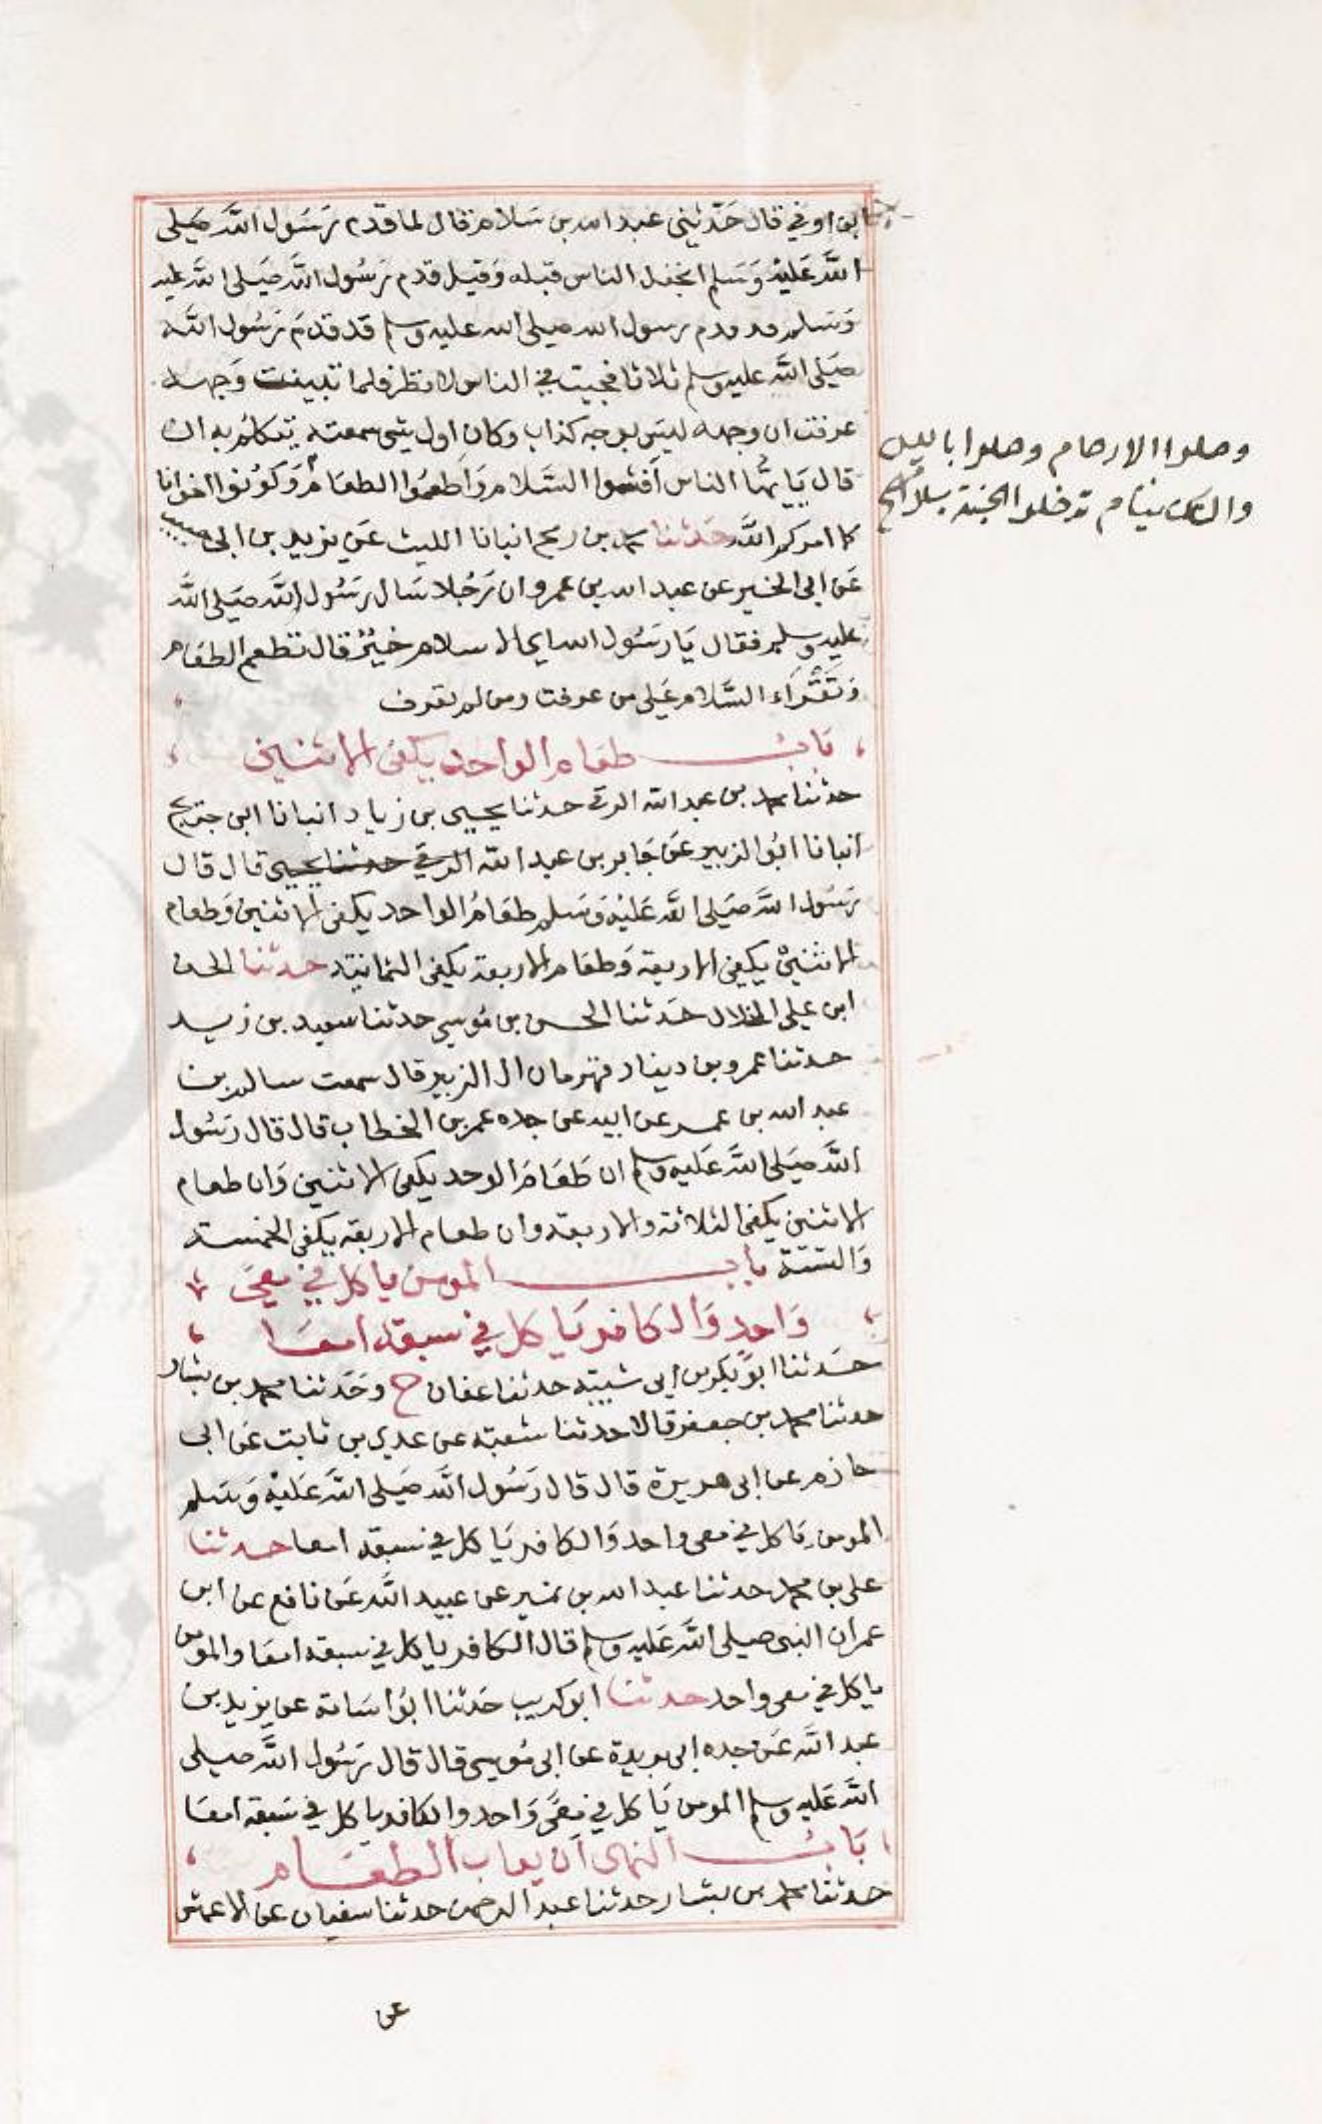 بن اوفي قال حَدثني عبد الله بن سَلام قال لما قدم رَسُول اللَّه صَلى
اللَّه عَليْه وَسَلم انجفل الناس قبله وَقيل قدم رَسُول اللَّه صَلى اللَّه عليه
وَسَلم قد قدم رسول الله صلى الله عليه وسلم قد قدم رَسُول اللَّه
صَلى اللَّه عليه وسلم ثلاثا فجيت في الناس لانظر فلما تبينت وَجهه
عرفت ان وجهه ليسَ بوجه كذاب وكان اول شي سمعته تكلم به ان
قال يَا يهَّا الناس اَفشوا السَّلام وَاطعمُوا الطعَام وَكونوا اخوانا
وصلوا الارحام وصلوا بالليل
والناس نيام تدخلوا الجنة بسلام
كما امركم اللَّه حَدثنا محمد بن رمح انبانا الليث عَن يزيد بن ابى حبيب
عَن ابى الخير عن عبد الله بن عمرو ان رَجُلا سَال رسَول اللَّه صَلى اللَّه
عليه وسلم فقال يَا رَسُول الله اي الاسلام خيْرٌ قال تطعم الطعَام
وَتَقْرَاء السَّلام عَلى من عرفت ومن لم تعرف
بَابُ طعَام الواحد يكفى الاثنين
حدثنا محمد بن عبد الله الرقي حدثنا يحيى بن زياد انبانا ابن جريج
انبانا ابُو الزبير عَن جَابر بن عبد الله الرقي حدثنا يحيى قال قال
رَسُول اللَّه صَلى اللَّه عَليْه وَسَلم طعَامُ الواحد يكفى الاثنين وَطعام
الاثنينْ يكفى الاربعة وَطعَام الاربعة يكفى الثمانية حدثنا الحسن
ابن علي الخلال حَدثنا الحسن بن مُوسي حدثنا سعيد بن زيد
حدثنا عمرو بن دينار قهرمان ال الزبير قال سمعت سالم بن
عبد الله بن عمر عن ابيه عن جده عمر بن الخطاب قال قال رَسُول
اللَّه صَلى اللَّه عَليه وسلم ان طَعَامَ الوحد يكفى الاثنين وَان طعام
الاثنين يكفى الثلاثة والاربعة وان طعام الاربعة يكفى الخمسة
وَالستة بابُ المومن ياكل في معىَ
وَاحدٍ وَالكافر يَا كل في سبعة امعَا
حَدثنا ابوَ بكر بن ابى شيبة حدثنا عفان ح وحَدثنا محمد بن بشار
حدثنا محمد بن جعفر قالا حدثنا شعبة عن عدي بن ثابت عَن ابى
حازم عن ابى هريرة قال قال رَسُول اللَّه صَلى اللَّه عَليْه وَسَلم
المومن يَاكل في معى واحد وَالكافر يَا كل في سبعة امعا حدثنا
على بن محمد حدثنا عبد الله بن نمير عن عبيد اللَّه عَن نافع عن ابن
عمر ان النبى صلى اللَّه عَليه وسلم قال الكافر ياكل في سبعة امعَا والمومن
ياكل في معى واحد حدثنا ابو كريب حَدثنا ابُو اسَامة عن يزيد بن
عبد اللَّه عَن جده ابى بريدة عن ابى مُوسي قال قال رَسُول اللَّه صلى
اللَّه عَليه وسلم المومن يَا كل في معىً وَاحد والكافر يا كل في سَبعة امعَا
بَابُ النهى ان يعاب الطعَام
حدثنا محمد بن بشار حدثنا عبد الرحمن حدثنا سفيان عن الاعمش
عن